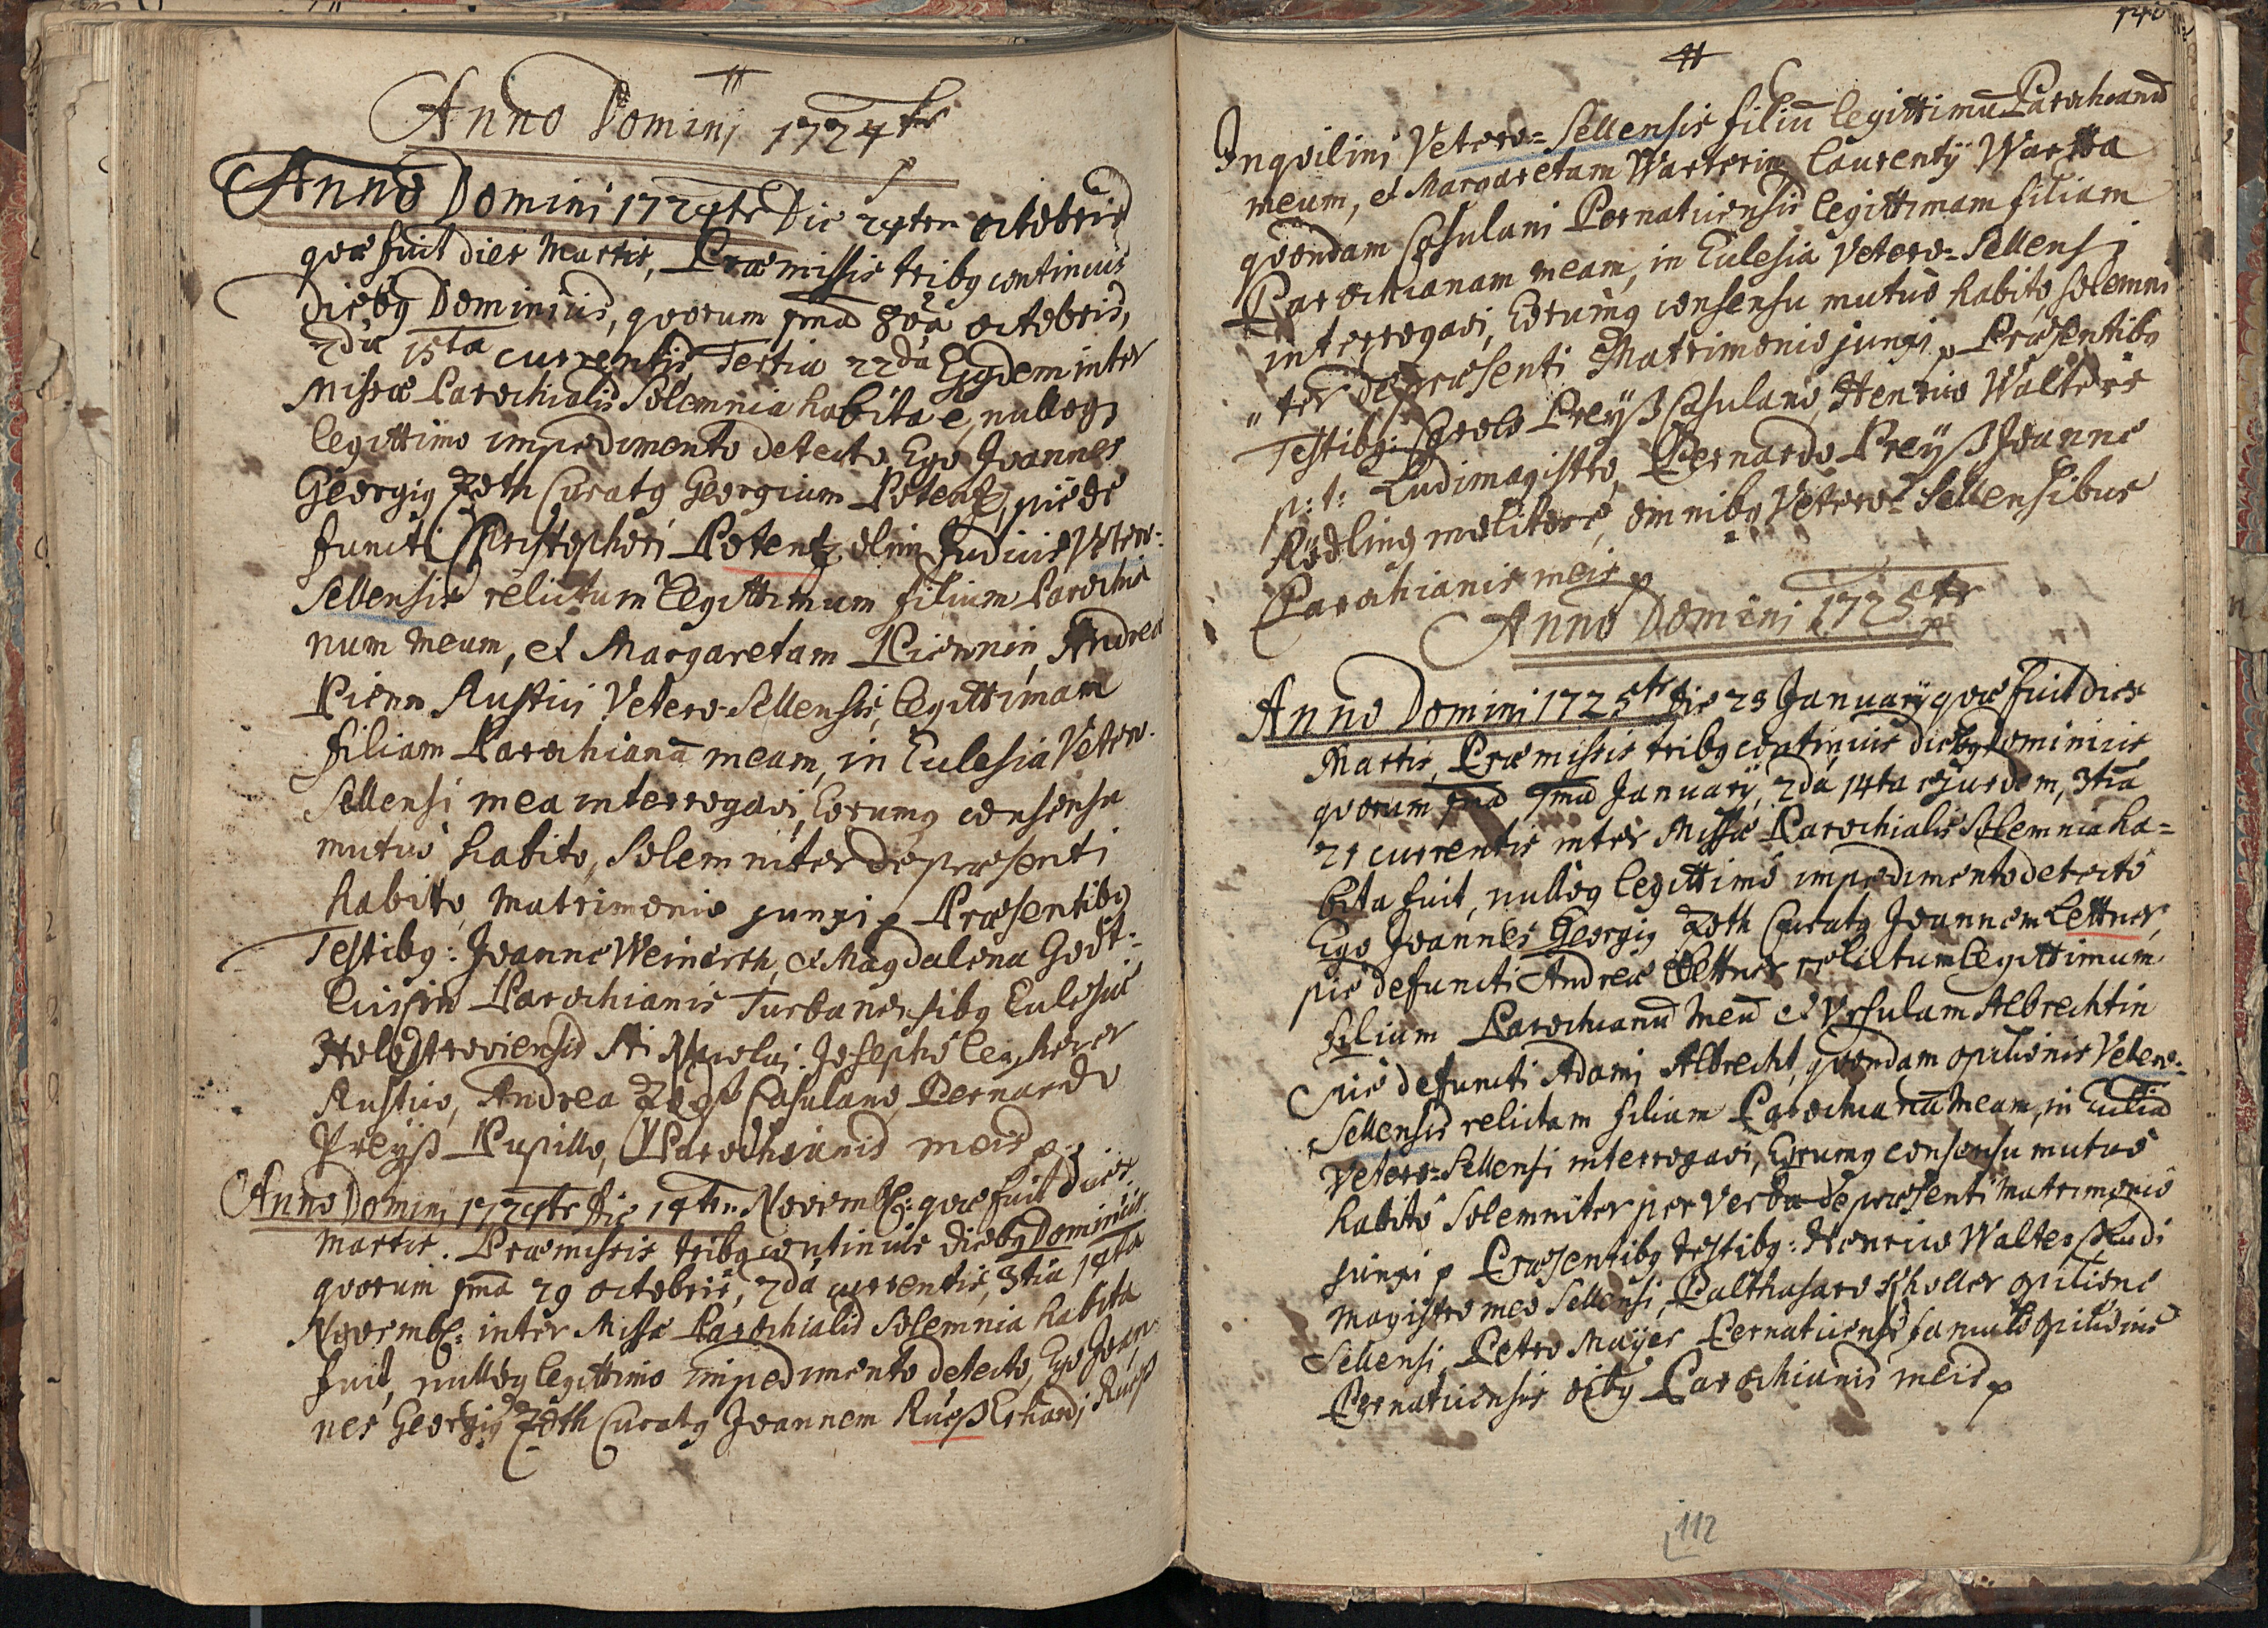 Anno Domini 1724te
Anno Domini 1724te Die 24ten octobris
quae fuit dies Martis, Praemissis tribq continuis
diebq Dominicis, quorum pma 8va octobris,
2da 15ta currentis, Tertia 22da Ejqdem inter
Missae Parochialis Solemnia habita e, nulloq
legittimo impedimento detecto, Ego Joannes
Georgiq Zöth Curatq Georgium Potentz, pie de
functi Christophori Potentz olim Judicis Vetero-
Sellensis relictum legittimum filium Parochia
num meum, et Margaretam Piennin, Andrea
Pienn Rustici Vetero-Sellensis, legittimam
filiam Parochianā meam, in Ecclesia Vetero-
Sellensi mea interrogavi, Eorumq consensu
mutuo habito, Solemniter de praesenti
habito, matrimonio junxi p Praesentibq
Testibq: Joanne Weinerth, et Magdalena Gott-
Parochianis Turbanensibq Ecclesiae
Sti Nicolai. Josepho
Rustico, Andrea Casulano, Bernardo
Preÿß Pupillo, Parochianis meis p
Anno Domini 1724te Die 14ten Novembr: quae fuit dies
Martis. Praemissis tribq continuis diebq Dominicis
quorum pma 29 octobris, 2da currentis, 3tia
Novembr: inter Missae Parochialis Solemnia habita
fuit, nulloq legittimo impedimento detecto, Ego Joan-
nes Georgiq Zöth Curatq Joannem Rueß Erhardi Rueß
Inquilini Vetero-Sellensis filiū legittimū Parochianū
meum, et Margaretam Warterin Laurentÿ Wartta
quondam Casulani Pernaticensis legittimam filiam
Parochianam meam, in Eclesia Vetero-Sellensi
interrogavi, Eorumq consensu mutuo habito, solemni
"ter de praesenti Matrimonio junxi p Praesentibq
Testibq: Carolo Preÿß Casulano, Henrico Walters
p: t: Ludimagistro, Bernardo Preÿß, Joanne
Rödling molitore, omnibq Vetero-Sellensibus
Parochianis meis p
Anno Domini 1725te
Anno Domini 1725te Die 23 Januarÿ quae fuit dies
Martis, Praemissis tribq continuis diebq Dominicis
quorum pma 7ma Januarÿ, 2da 14ta ejusdem, 3tia
21 currentis inter Missae Parochialis Solemnia ha-
bita fuit, nulloq legittimo impedimento detecto
Ego Joannes Georgiq Zöth Curatq Joannem Lettner,
pie defuncti Andreae Lettner relictum legittimum
filium Parochianū meū et Ursulam Albrechtin
pie defuncti Adami Albrecht, quondam opilionis Vetero-
Sellensis relictam filiam Parochianā meam, in Ecclia
Vetero-Sellensi interrogavi, Eorumq consensu mutuo
habito Solemniter per Verba de praesenti Matrimonio
junxi p Praesentibq testibq: Henrico Walters Ludi
magistro meo Sellensi, Balthasare Scholler opilione
Sellensi, Petro Maÿer Pernaticensis famulo opilionis
Pernaticensis oibq Parochianis meis p
112